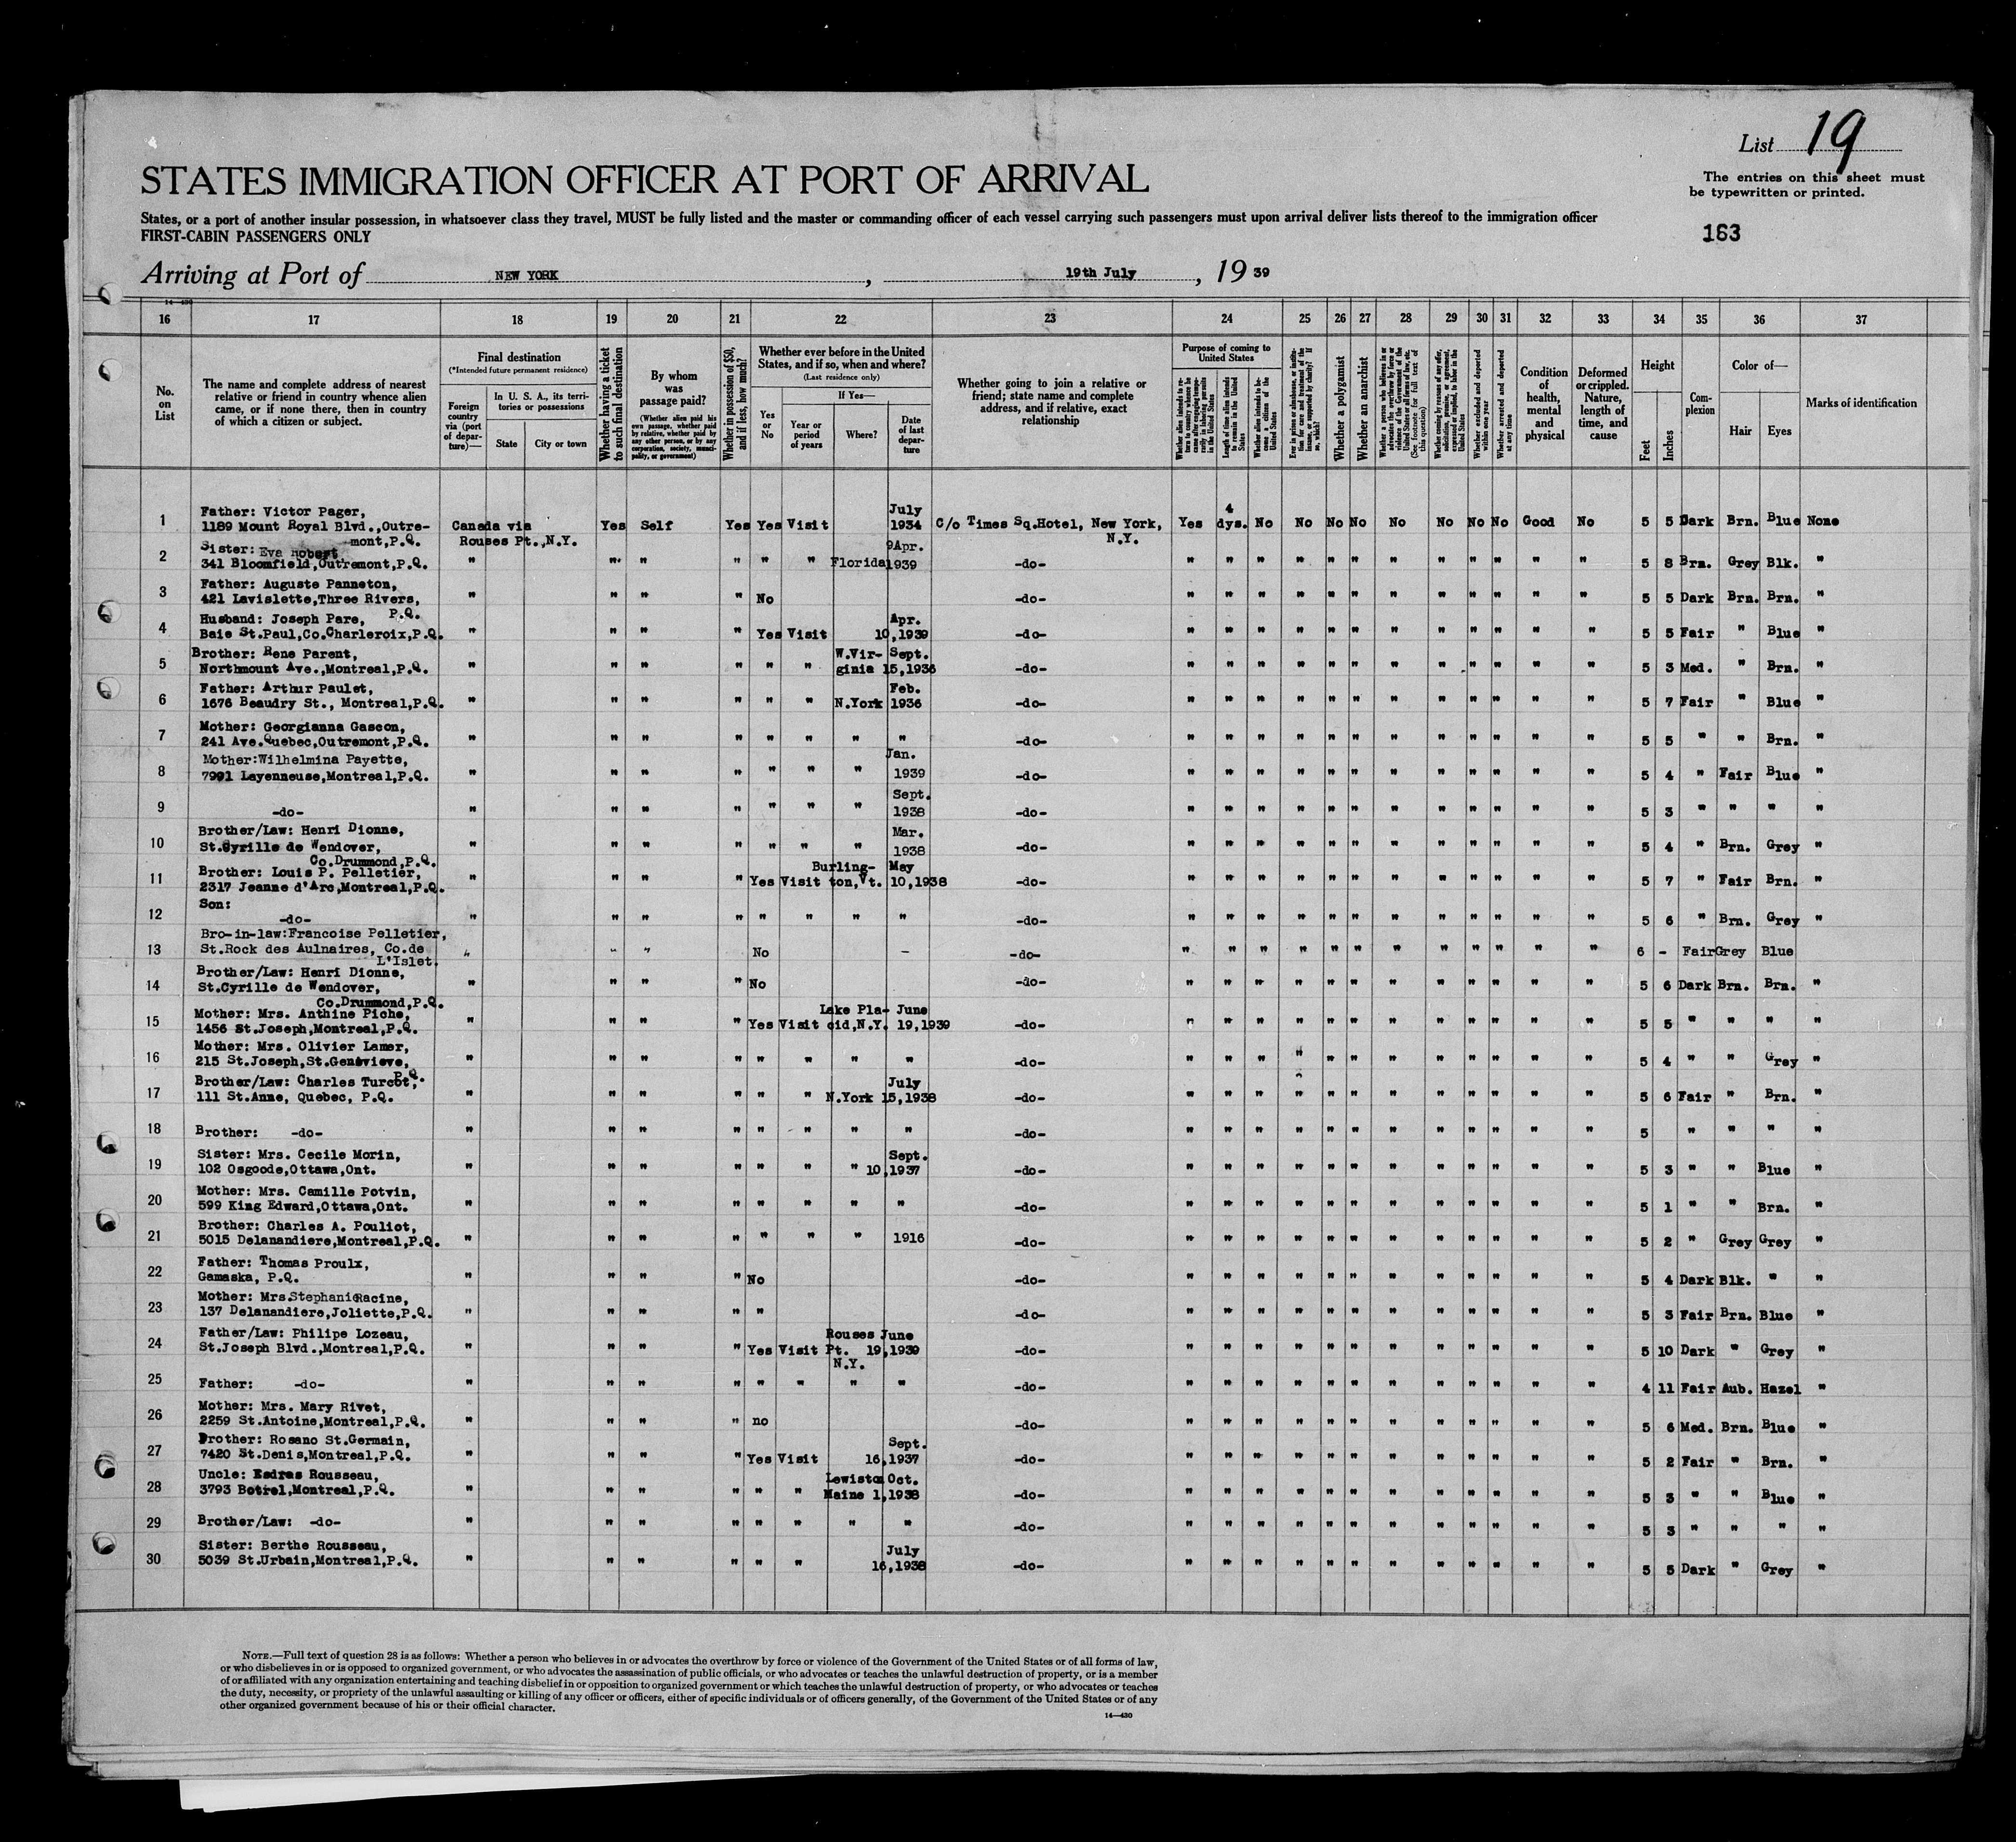 List 19
STATES IMMIGRATION OFFICER AT PORT OF ARRIVAL
The entries on this sheet must
be typewritten or printed.
States, or a port of another insular possession, in whatsoever class they travel, MUST be fully listed and the master or commanding officer of each vessel carrying such passengers must upon arrival deliver lists thereof to the immigration officer
FIRST-CABIN PASSENGERS ONLY
163
Arriving at Port of NEW YORK , 19th July , 19 39
14—430
16 17 18 19 20 21 22 23 24 25 26 27 28 29 30 31 32 33 34 35 36 37
No. on List
The name and complete address of nearest relative or friend in country whence alien came, or if none there, then in country of which a citizen or subject.
Final destination
(*Intended future permanent residence)
Foreign country via (port of departure)—
In U. S. A., its territories or possessions
State
City or town
Whether having a ticket to such final destination
By whom was passage paid?
(Whether alien paid his own passage, whether paid by relative, whether paid by any other person, or by any corporation, society, municipality, or government)
Whether in possession of $50, and if less, how much?
Whether ever before in the United States, and if so, when and where?
(Last residence only)
Yes or No
If Yes—
Year or period of years
Where?
Date of last departure
Whether going to join a relative or friend; state name and complete address, and if relative, exact relationship
Purpose of coming to United States
Length of time alien intends to remain in the United States
Whether alien intends to become a citizen of the United States
Whether a polygamist
Whether an anarchist
Whether excluded and deported within one year
Whether arrested and deported at any time
Condition of health, mental and physical
Deformed or crippled. Nature, length of time, and cause
Height
Feet
Inches
Complexion
Color of—
Hair
Eyes
Marks of identification
1 Father: Victor Pager, 1189 Mount Royal Blvd.,Outremont,P.Q. Canada via Rouses Pt.,N.Y. Yes Self Yes Yes Visit July 1934 C/o Times Sq.Hotel, New York, N.Y. Yes 4 dys. No No No No No No No No Good No 5 5 Dark Brn. Blue None
2 Sister: Eva Robert, 341 Bloomfield,Outremont,P.Q. " " " " " " Florida 9Apr. 1939 -do- " " " " " " " " " " " " 5 8 Brn. Grey Blk. "
3 Father: Auguste Panneton, 421 Laviolette,Three Rivers, P.Q. " " " " No -do- " " " " " " " " " " " " 5 5 Dark Brn. Brn. "
4 Husband: Joseph Pare, Baie St.Paul,Co.Charleroix,P.Q. " " " " Yes Visit Apr. 10,1939 -do- " " " " " " " " " " " " 5 5 Fair " Blue "
5 Brother: Rene Parent, Northmount Ave.,Montreal,P.Q. " " " " " " W.Virginia Sept. 15,1936 -do- " " " " " " " " " " " " 5 3 Med. " Brn. "
6 Father: Arthur Paulet, 1676 Beaudry St., Montreal,P.Q. " " " " " " N.York Feb. 1936 -do- " " " " " " " " " " " " 5 7 Fair " Blue "
7 Mother: Georgianna Gascon, 241 Ave.Quebec,Outremont,P.Q. " " " " " " " " -do- " " " " " " " " " " " " 5 5 " " Brn. "
8 Mother:Wilhelmina Payette, 7991 Layenneuse,Montreal,P.Q. " " " " " " " Jan. 1939 -do- " " " " " " " " " " " " 5 4 " Fair Blue "
9 -do- " " " " " " " Sept. 1938 -do- " " " " " " " " " " " " 5 3 " " " "
10 Brother/Law: Henri Dionne, St.Cyrille de Wendover, Co.Drummond,P.Q. " " " " " " " Mar. 1938 -do- " " " " " " " " " " " " 5 4 " Brn. Grey "
11 Brother: Louis P. Pelletier, 2317 Jeanne d'Arc,Montreal,P.Q. " " " " Yes Visit Burlington,Vt. May 10,1938 -do- " " " " " " " " " " " " 5 7 " Fair Brn. "
12 Son: -do- " " " " " " " " -do- " " " " " " " " " " " " 5 6 " Brn. Grey "
13 Bro-in-law:Francoise Pelletier, St.Rock des Aulnaires, Co.de L'Islet. " " " No - -do- " " " " " " " " " " " " 6 - Fair Grey Blue
14 Brother/Law: Henri Dionne, St.Cyrille de Wendover, Co.Drummond,P.Q. " " " " No -do- " " " " " " " " " " " " 5 6 Dark Brn. Brn. "
15 Mother: Mrs. Anthine Piche, 1456 St.Joseph,Montreal,P.Q. " " " " Yes Visit Lake Placid,N.Y. June 19,1939 -do- " " " " " " " " " " " " 5 5 " " " "
16 Mother: Mrs. Olivier Lamer, 215 St.Joseph,St.Genevieve, P.Q. " " " " " " " " -do- " " " " " " " " " " " " 5 4 " " Grey "
17 Brother/Law: Charles Turcot, 111 St.Anne, Quebec, P.Q. " " " " " " N.York July 15,1938 -do- " " " " " " " " " " " " 5 6 Fair " Brn. "
18 Brother: -do- " " " " " " " " -do- " " " " " " " " " " " " 5 " " " "
19 Sister: Mrs. Cecile Morin, 102 Osgoode,Ottawa,Ont. " " " " " " " Sept. 10,1937 -do- " " " " " " " " " " " " 5 3 " " Blue "
20 Mother: Mrs. Camille Potvin, 599 King Edward,Ottawa,Ont. " " " " " " " " -do- " " " " " " " " " " " " 5 1 " " Brn. "
21 Brother: Charles A. Pouliot, 5015 Delanandiere,Montreal,P.Q. " " " " " " " 1916 -do- " " " " " " " " " " " " 5 2 " Grey Grey "
22 Father: Thomas Proulx, Gamaska, P.Q. " " " " No -do- " " " " " " " " " " " " 5 4 Dark Blk. " "
23 Mother: Mrs.Stephanie Racine, 137 Delanandiere,Joliette,P.Q. " " " " " -do- " " " " " " " " " " " " 5 3 Fair Brn. Blue "
24 Father/Law: Philipe Lozeau, St.Joseph Blvd.,Montreal,P.Q. " " " " Yes Visit Rouses Pt. N.Y. June 19,1939 -do- " " " " " " " " " " " " 5 10 Dark " Grey "
25 Father: -do- " " " " " " " " -do- " " " " " " " " " " " " 4 11 Fair Aub. Hazel "
26 Mother: Mrs. Mary Rivet, 2259 St.Antoine,Montreal,P.Q. " " " " no -do- " " " " " " " " " " " " 5 6 Med. Brn. Blue "
27 Brother: Rosano St.Germain, 7420 St.Denis,Montreal,P.Q. " " " " Yes Visit Sept. 16,1937 -do- " " " " " " " " " " " " 5 2 Fair " Brn. "
28 Uncle: Esdras Rousseau, 3793 Botrel,Montreal,P.Q. " " " " " " Lewiston Maine Oct. 1,1938 -do- " " " " " " " " " " " " 5 3 " " Blue "
29 Brother/Law: -do- " " " " " " " " -do- " " " " " " " " " " " " 5 3 " " " "
30 Sister: Berthe Rousseau, 5039 St.Urbain,Montreal,P.Q. " " " " " " July 16,1938 -do- " " " " " " " " " " " " 5 5 Dark " Grey "
NOTE.—Full text of question 28 is as follows: Whether a person who believes in or advocates the overthrow by force or violence of the Government of the United States or of all forms of law,
or who disbelieves in or is opposed to organized government, or who advocates the assassination of public officials, or who advocates or teaches the unlawful destruction of property, or is a member
of or affiliated with any organization entertaining and teaching disbelief in or opposition to organized government or which teaches the unlawful destruction of property, or who advocates or teaches
the duty, necessity, or propriety of the unlawful assaulting or killing of any officer or officers, either of specific individuals or of officers generally, of the Government of the United States or of any
other organized government because of his or their official character.
14—430